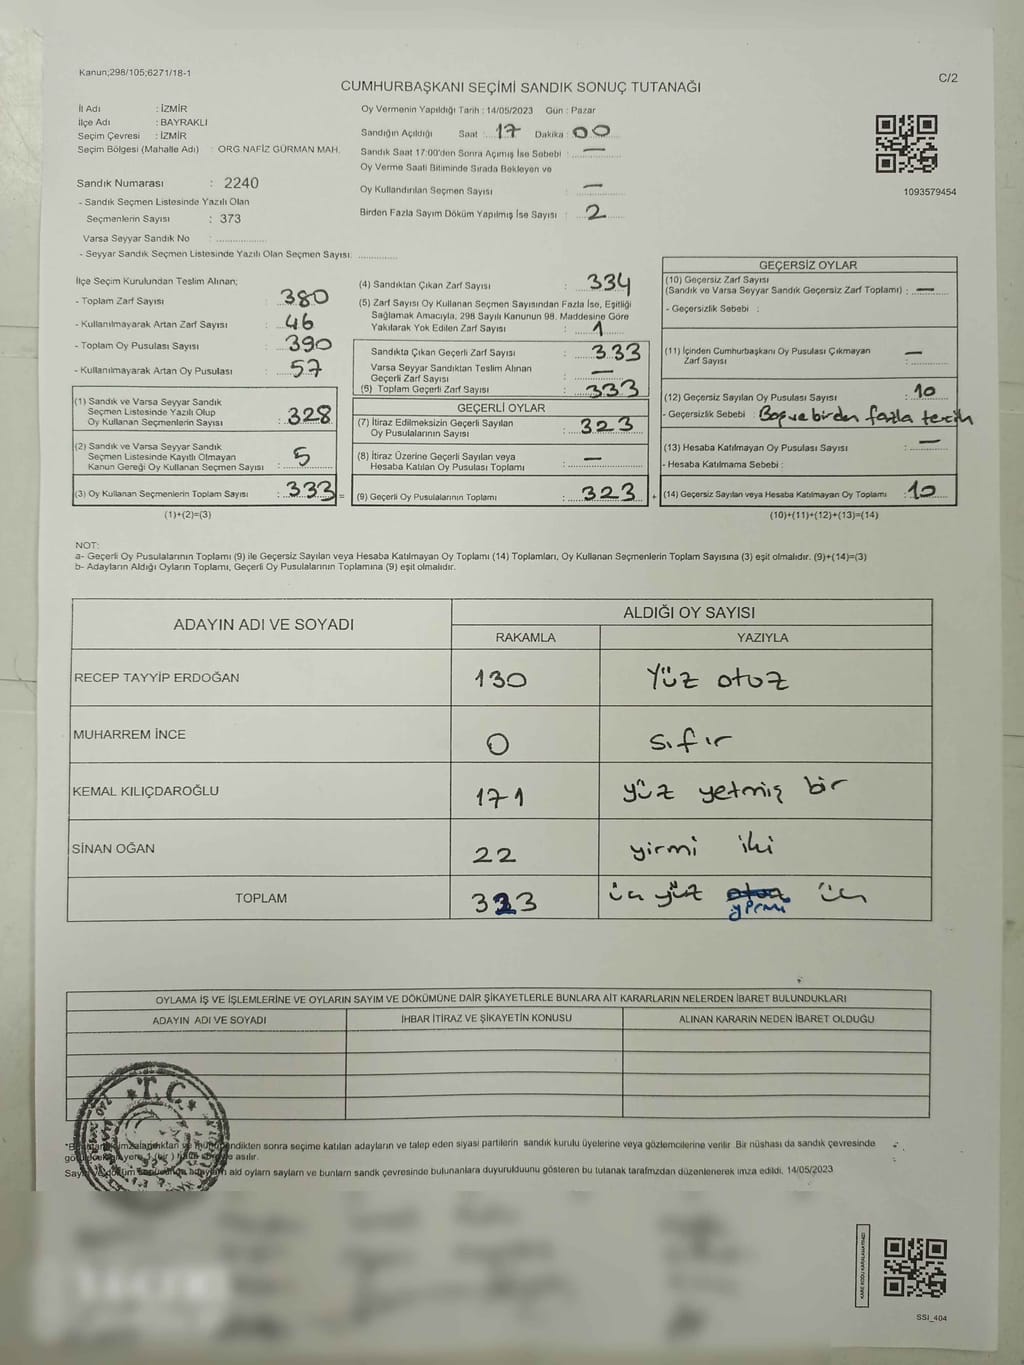 Kanun;298/105;6271/18-1
C/2
CUMHURBAŞKANI SEÇİMİ SANDIK SONUÇ TUTANAĞI
İl Adı : İZMİR
İlçe Adı : BAYRAKLI
Seçim Çevresi : İZMİR
Seçim Bölgesi (Mahalle Adı) : ORG.NAFİZ GÜRMAN MAH.
Sandık Numarası : 2240
- Sandık Seçmen Listesinde Yazılı Olan
Seçmenlerin Sayısı : 373
Varsa Seyyar Sandık No : ................
- Seyyar Sandık Seçmen Listesinde Yazılı Olan Seçmen Sayısı: .............
Oy Vermenin Yapıldığı Tarih : 14/05/2023 Gün : Pazar
Sandığın Açıldığı Saat : 17 Dakika : 00
Sandık Saat 17:00'den Sonra Açılmış İse Sebebi : —
Oy Verme Saati Bitiminde Sırada Bekleyen ve
Oy Kullandırılan Seçmen Sayısı : —
Birden Fazla Sayım Döküm Yapılmış İse Sayısı : 2
1093579454
İlçe Seçim Kurulundan Teslim Alınan;
- Toplam Zarf Sayısı : 380
- Kullanılmayarak Artan Zarf Sayısı : 46
- Toplam Oy Pusulası Sayısı : 390
- Kullanılmayarak Artan Oy Pusulası : 57
(1) Sandık ve Varsa Seyyar Sandık
Seçmen Listesinde Yazılı Olup
Oy Kullanan Seçmenlerin Sayısı : 328
(2) Sandık ve Varsa Seyyar Sandık
Seçmen Listesinde Kayıtlı Olmayan
Kanun Gereği Oy Kullanan Seçmen Sayısı : 5
(3) Oy Kullanan Seçmenlerin Toplam Sayısı : 333 =
(1)+(2)=(3)
(4) Sandıktan Çıkan Zarf Sayısı : 334
(5) Zarf Sayısı Oy Kullanan Seçmen Sayısından Fazla İse, Eşitliği
Sağlamak Amacıyla, 298 Sayılı Kanunun 98. Maddesine Göre
Yakılarak Yok Edilen Zarf Sayısı : 1
Sandıkta Çıkan Geçerli Zarf Sayısı : 333
Varsa Seyyar Sandıktan Teslim Alınan
Geçerli Zarf Sayısı : —
(6) Toplam Geçerli Zarf Sayısı : 333
GEÇERLİ OYLAR
(7) İtiraz Edilmeksizin Geçerli Sayılan
Oy Pusulalarının Sayısı : 323
(8) İtiraz Üzerine Geçerli Sayılan veya
Hesaba Katılan Oy Pusulası Toplamı : —
(9) Geçerli Oy Pusulalarının Toplamı : 323 +
GEÇERSİZ OYLAR
(10) Geçersiz Zarf Sayısı
(Sandık ve Varsa Seyyar Sandık Geçersiz Zarf Toplamı) : —
- Geçersizlik Sebebi :
(11) İçinden Cumhurbaşkanı Oy Pusulası Çıkmayan
Zarf Sayısı : —
(12) Geçersiz Sayılan Oy Pusulası Sayısı : 10
- Geçersizlik Sebebi : Boş ve birden fazla tercih
(13) Hesaba Katılmayan Oy Pusulası Sayısı : —
- Hesaba Katılmama Sebebi :
(14) Geçersiz Sayılan veya Hesaba Katılmayan Oy Toplamı : 10
(10)+(11)+(12)+(13)=(14)
NOT:
a- Geçerli Oy Pusulalarının Toplamı (9) ile Geçersiz Sayılan veya Hesaba Katılmayan Oy Toplamı (14) Toplamları, Oy Kullanan Seçmenlerin Toplam Sayısına (3) eşit olmalıdır. (9)+(14)=(3)
b- Adayların Aldığı Oyların Toplamı, Geçerli Oy Pusulalarının Toplamına (9) eşit olmalıdır.
ADAYIN ADI VE SOYADI
ALDIĞI OY SAYISI
RAKAMLA YAZIYLA
RECEP TAYYİP ERDOĞAN 130 Yüz otuz
MUHARREM İNCE 0 sıfır
KEMAL KILIÇDAROĞLU 171 yüz yetmiş bir
SİNAN OĞAN 22 yirmi iki
TOPLAM 323 üç yüz yirmi üç
OYLAMA İŞ VE İŞLEMLERİNE VE OYLARIN SAYIM VE DÖKÜMÜNE DAİR ŞİKAYETLERLE BUNLARA AİT KARARLARIN NELERDEN İBARET BULUNDUKLARI
ADAYIN ADI VE SOYADI İHBAR İTİRAZ VE ŞİKAYETİN KONUSU ALINAN KARARIN NEDEN İBARET OLDUĞU
T.C.
sonra seçime katılan adayların ve talep eden siyasi partilerin sandık kurulu üyelerine veya gözlemcilerine verilir. Bir nüshası da sandık çevresinde
asılır.
ald oyların saylarn ve bunların sandk çevresinde bulunanlara duyurulduunu gösteren bu tutanak tarafmzdan düzenlenerek imza edildi. 14/05/2023
SSI_404